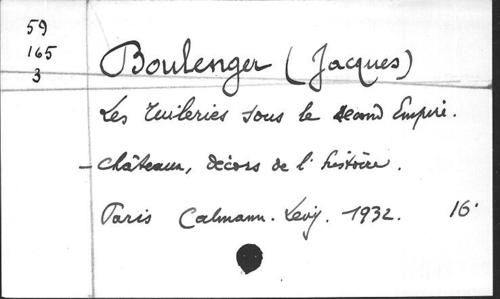 59
165
3
Boulenger (Jacques)
Les Tuileries sous le second Empire.
- Châteaux, décors de l'histoire.
Paris Calmann-Levy. 1932. 16°